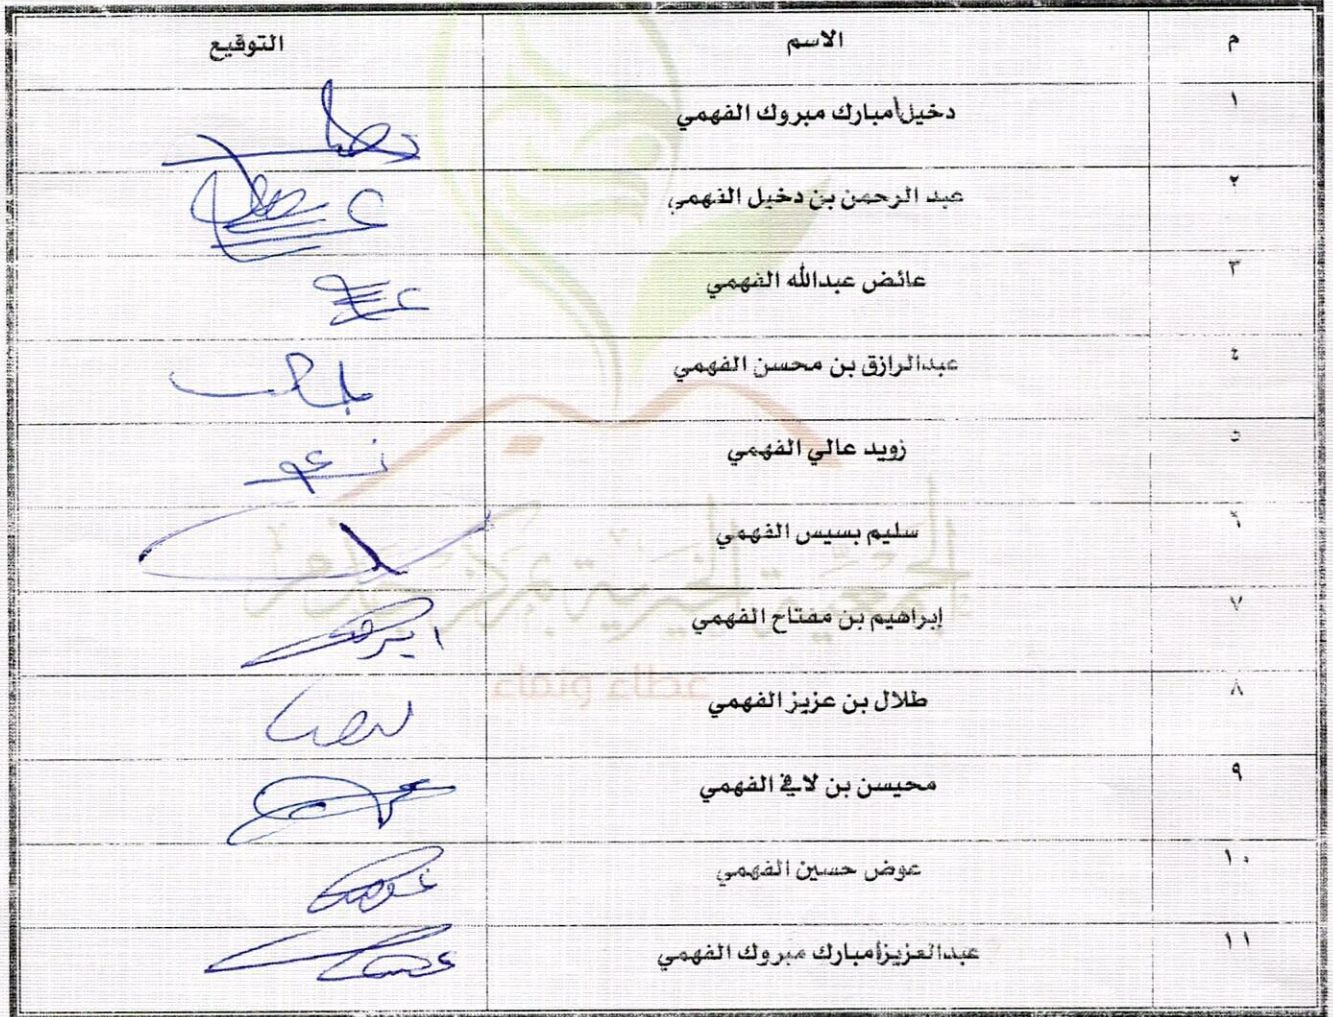 م الاسم التوقيع
١ دخيل مبارك مبروك الفهمي
٢ عبد الرحمن بن دخيل الفهمي
٣ عائض عبدالله الفهمي
٤ عبدالرازق بن محسن الفهمي
٥ زويد عالي الفهمي
٦ سليم بسيس الفهمي
٧ إبراهيم بن مفتاح الفهمي
٨ طلال بن عزيز الفهمي
٩ محيسن بن لافي الفهمي
١٠ عوض حسين الفهمي
١١ عبدالعزيز مبارك مبروك الفهمي
الجمعية الخيرية بمركز
عطاء ونماء